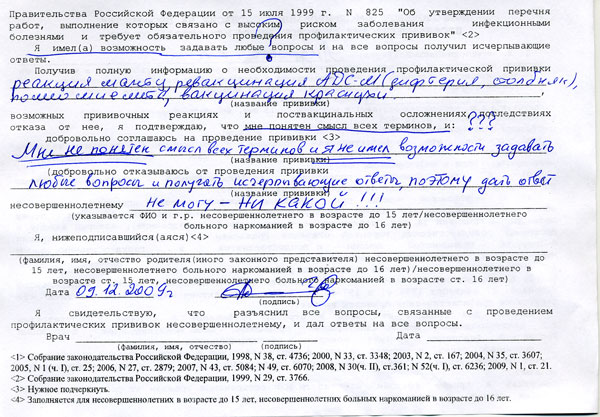 Правительства Российской Федерации от 15 июля 1999 г. N 825 "Об утверждении перечня
работ, выполнение которых связано с высоким риском заболевания инфекционными
болезнями и требует обязательного проведения профилактических прививок" <2>
Я имел(а) возможность задавать любые вопросы и на все вопросы получил исчерпывающие
ответы.
Получив полную информацию о необходимости проведения профилактической прививки
реакция манту, ревакцинация АДС-М (дифтерия, столбняк),
полиомиелит, вакцинация краснухи.
(название прививки)
возможных прививочных реакциях и поствакцинальных осложнениях, последствиях
отказа от нее, я подтверждаю, что мне понятен смысл всех терминов, и: ???
добровольно соглашаюсь на проведение прививки <3>
Мне не понятен смысл всех терминов и я не имел возможности задавать
(название прививки)
(добровольно отказываюсь от проведения прививки
любые вопросы и получать исчерпывающие ответы, поэтому дать ответ
(название прививки)
несовершеннолетнему не могу - НИ КАКОЙ !!!
(указывается ФИО и г.р. несовершеннолетнего в возрасте до 15 лет/несовершеннолетнего
больного наркоманией в возрасте до 16 лет)
Я, нижеподписавшийся(аяся)<4>
(фамилия, имя, отчество родителя(иного законного представителя) несовершеннолетнего в возрасте до
15 лет, несовершеннолетнего больного наркоманией в возрасте до 16 лет)/несовершеннолетнего в
возрасте ст. 15 лет, несовершеннолетнего больного наркоманией в возрасте ст. 16 лет)
Дата 09.12.2009г
(подпись)
Я свидетельствую, что разъяснил все вопросы, связанные с проведением
профилактических прививок несовершеннолетнему, и дал ответы на все вопросы.
Врач Дата
(фамилия, имя, отчество) (подпись)
<1> Собрание законодательства Российской Федерации, 1998, N 38, ст. 4736; 2000, N 33, ст. 3348; 2003, N 2, ст. 167; 2004, N 35, ст. 3607;
2005, N 1 (ч. I), ст. 25; 2006, N 27, ст. 2879; 2007, N 43, ст. 5084; N 49, ст. 6070; 2008, N 30(ч. II), ст.361; N 52(ч. I), ст. 6236; 2009, N 1, ст. 21.
<2> Собрание законодательства Российской Федерации, 1999, N 29, ст. 3766.
<3> Нужное подчеркнуть.
<4> Заполняется для несовершеннолетних в возрасте до 15 лет, несовершеннолетних больных наркоманией в возрасте до 16 лет.